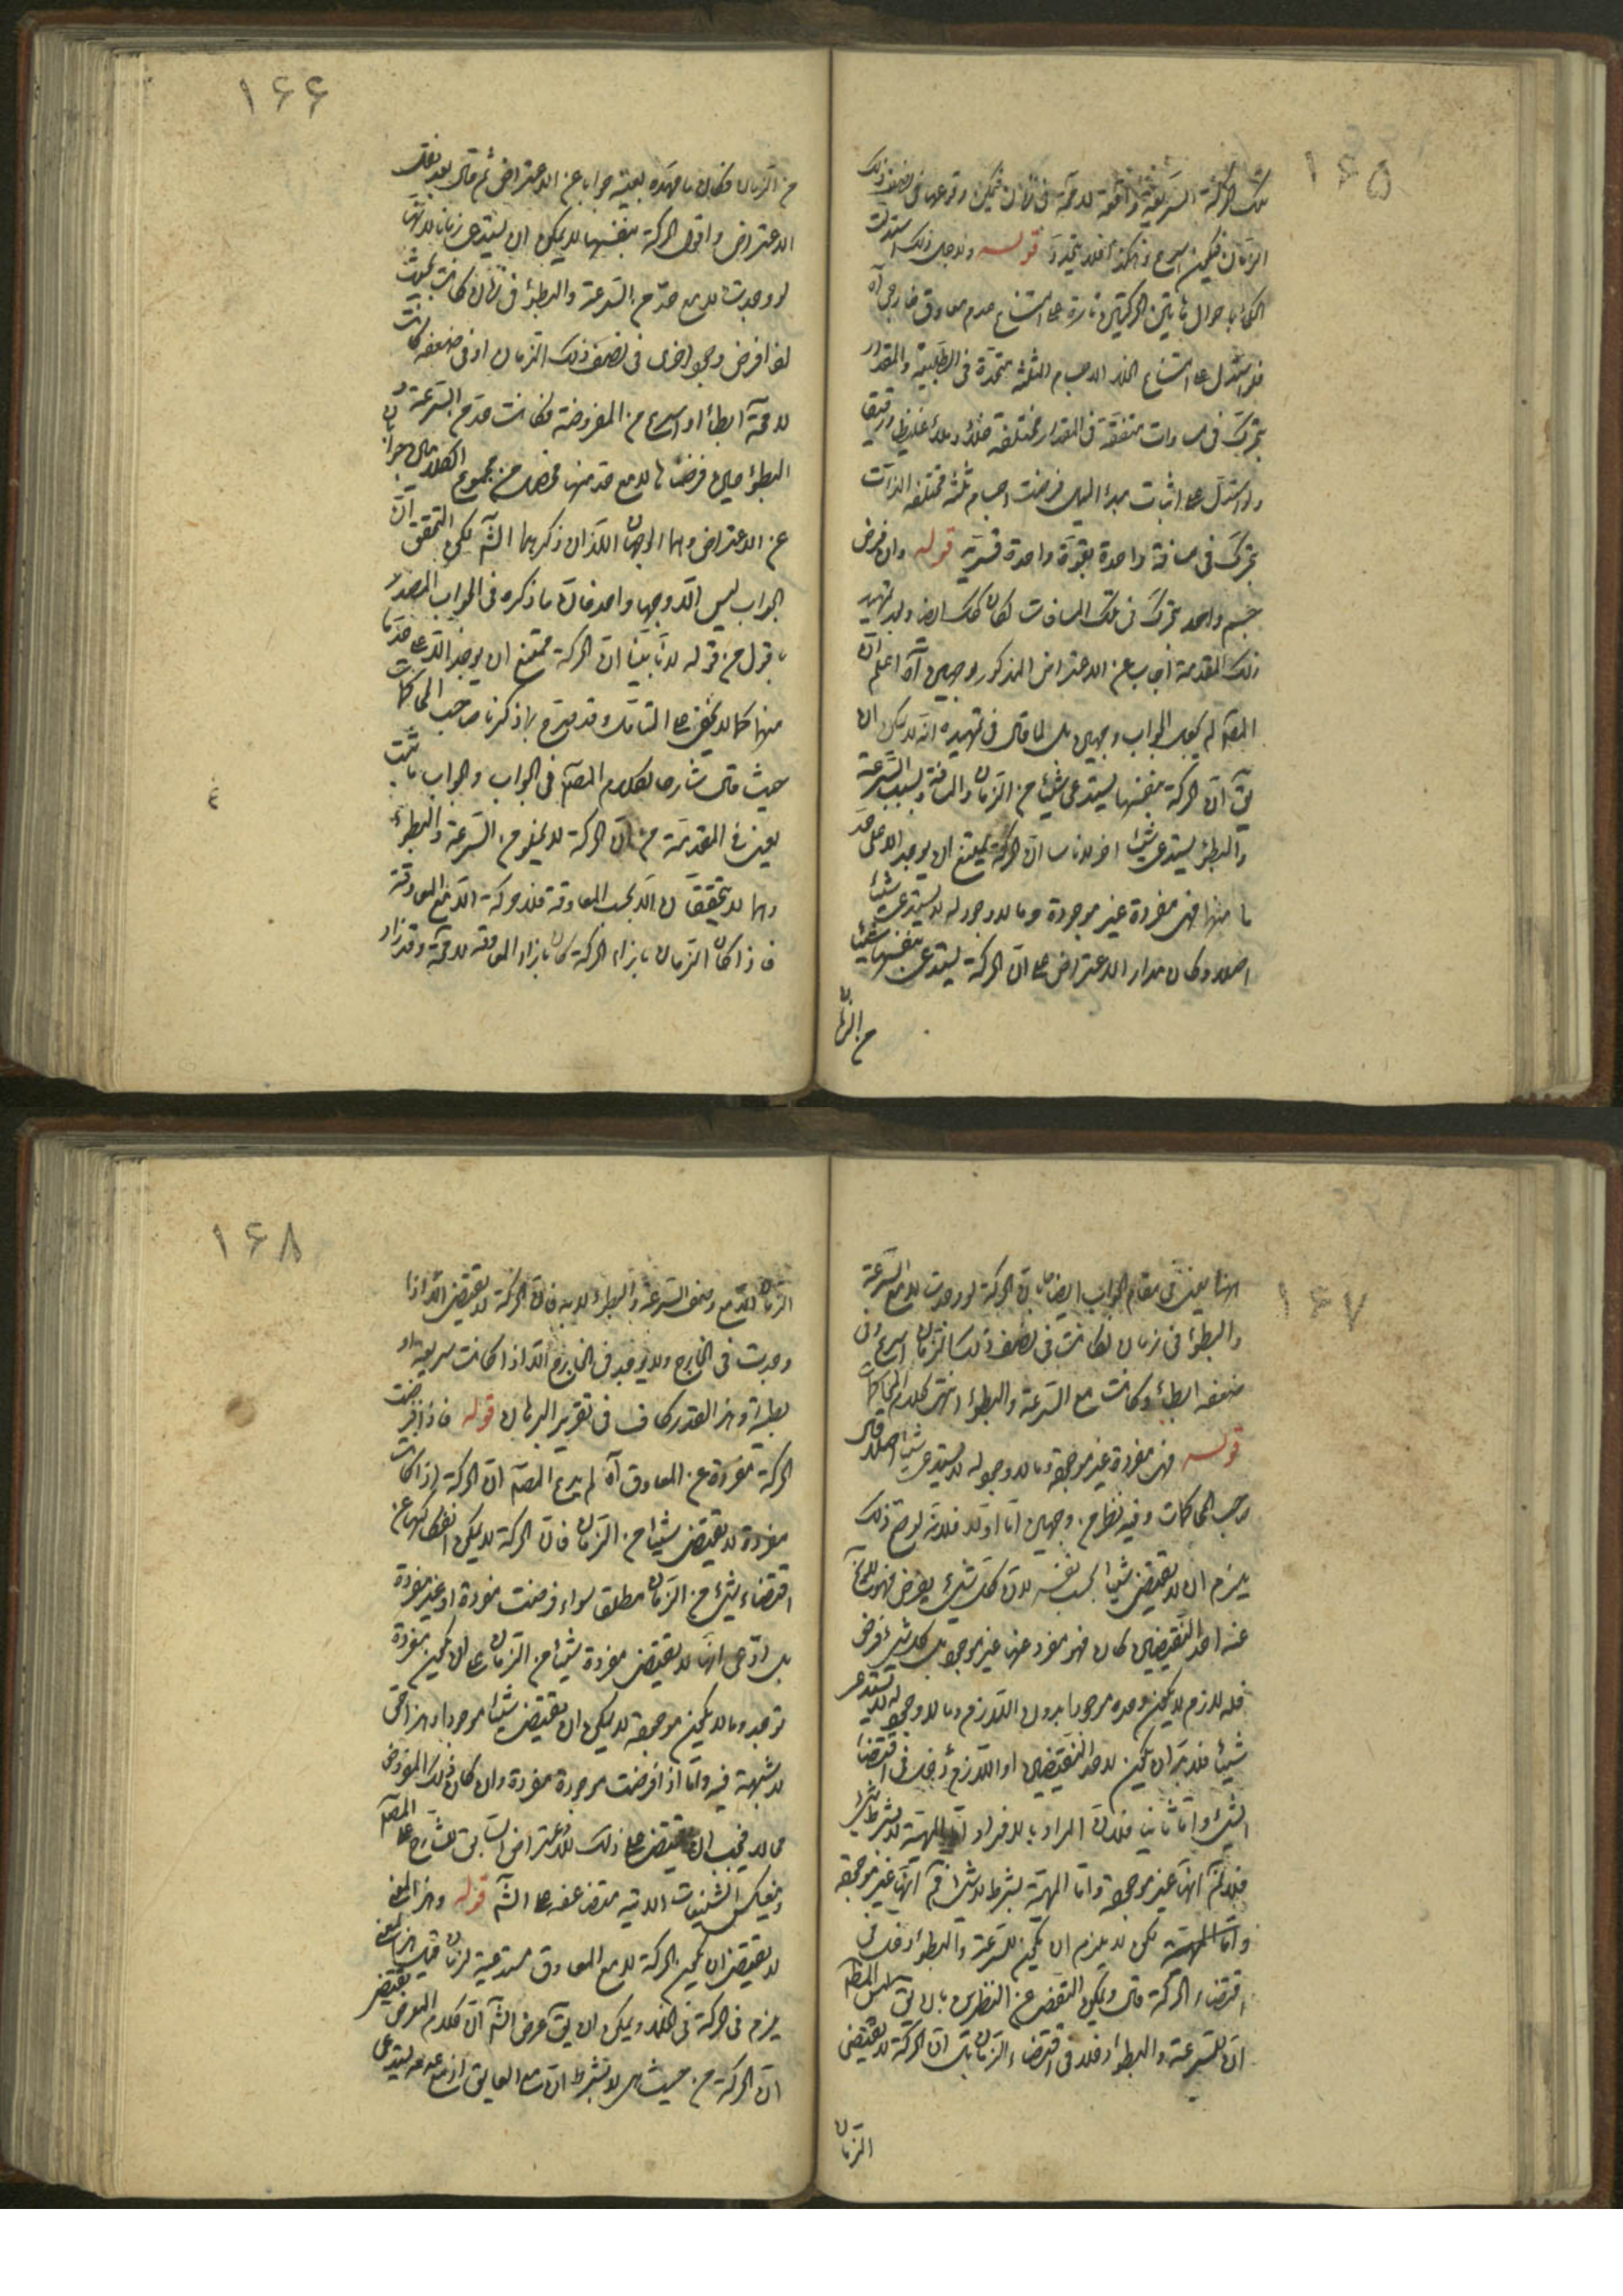 ١۶۵
تلك الحركة السريعة واقعة لا محة فى زمان فيمكن وقوعها فى نصف ذلك
الزمان فيكون اسرع وهكذا فلا يتحدد قوله ولاجل ذلك استدلت
الحكماء باحوال هاتين الحركتين تارة على امتناع عدم معاوق خارجى آه
فلو استدل على امتناع الخلاء الاجسام الثلثة متحدة فى الطبيعة والمقدار
يتحرك فى مسافات متفقة فى المقدار مختلفة خلاء وملاء غليظا ورقيقا
ولو استدل على اثبات مبدء الميل فرضت اجسام ثلثة مختلفة الذات
يتحرك فى مسافة واحدة بقوة واحدة قسرية قوله وان فرض
جسم واحد يتحرك فى تلك المسافات لكان كك ايضا ولتمهيد
ذلك المقدمة اجاب عن الاعتراض المذكور بوجهين آه اعلم ان
المص لم يجب الجواب وجهين بل لما قال فى تمهيده انه لا يمكن ان
يق ان الحركة بنفسها يستدعى شيئا من الزمان والمسافة وبسبب السرعة
والبطؤ يستدعى شيئا اخر لانا بينا ان الحركة يمتنع ان يوجد الا على حد
ما منهما فهى مفردة غير موجودة وما لا وجود له لا يستدعى شيئا
اصلا وكان مدار الاعتراض على ان الحركة يستدعى بنفسها شيئا
من الزمان
١۶۶
من الزمان فكان ما مهده بعينه جوابا عن الاعتراض ثم قال بعد نقل
الاعتراض واقول الحركة بنفسها لا يمكن ان يستدعى زمانا لانها
لو وجدت لا مع حد من السرعة والبطؤ فى زمان كانت بحيث
اذا فرض وجود اخرى فى نصف ذلك الزمان او فى ضعفه كانت
لا محة ابطا او اسرع من المفروضة فكانت حد من السرعة و
البطؤ حين فرضناها لا مع حد منها فحصل من مجموع الكلامين جوابان
عن الاعتراض وهما الوجهان اللذان ذكرهما الش لكن التحقيق ان
الجواب ليس الا وجها واحدا فان ما ذكره فى الجواب المصدر
باقول من قوله لانا بينا ان الحركة يمتنع ان يوجد الا على حد ما
منهما كما لا يخفى على المتامل وقد صرح بما ذكرنا صاحب المحاكمات
حيث قال شارحا لكلام المص فى الجواب والجواب ما ثبت
بعينه فى المقدمة من ان الحركة لا يخلو من السرعة والبطؤ
وهما لا يتحققان الا بحسب المعاوقة فلا حركة الا مع المعاوقة
فاذا كان الزمان بازاء الحركة كان بازاء المعاوقة لا محة وقد زاد
١۶٧
ههنا يعنى فى مقام الجواب ايضا ما بان الحركة لو وجدت لا مع السرعة
والبطؤ فى زمان لكانت فى نصف ذلك الزمان اسرع وفى
ضعفه ابطأ وكانت مع السرعة والبطؤ انتهى كلام المحاكمات
قوله فهى مفردة غير موجودة وما لا وجود له لا يستدعى شيئا اصلا قال
صاحب المحاكمات وفيه نظر من وجهين اما اولا فلانه لو صح ذلك
يلزم ان لا يقتضى شيئا بحسب نفسه لان كل شىء يفرض
عنه احد النقيضين كان فهو مفرد عنهما غير موجود بل كل شىء فرض
فله لازم لا يكون وحده موجودا بدون اللازم وما لا وجود له لا يستدعى
شيئا فلا بد ان يكون لاحد النقيضين او اللازم دخل فى اقتضاء
الشىء واما ثانيا فلان المراد بالافراد ان الماهية لا بشرط شىء
فلا نم انها غير موجودة واما الماهية بشرط لا شىء فم انها غير موجودة
واما الماهية لكن لا يلزم ان يكون للسرعة والبطؤ دخل فى
اقتضاء الحركة قال ويمكن التقصى عن النظرين بان يق ليس المط
ان للسرعة والبطؤ دخلا فى اقتضاء الزمان بل ان الحركة لا يقتضى
الزمان
١۶٨
الزمان الا مع وصفى السرعة والبطؤ لا به فان الحركة لا يقتضى الا اذا
وجدت فى الخارج ولا يوجد فى الخارج الا اذا كانت سريعة او
بطيئة وهذا القدر كاف فى تقرير البرهان قوله فاذا فرضت
الحركة مفردة عن المعاوق آه لم يدع المص ان الحركة اذا كانت
مفردة لا يقتضى شيئا من الزمان فان الحركة لا يمكن انفكاكها عن
اقتضاء شىء من الزمان مطلقا سواء فرضت مفردة او غير مفردة
بل ادعى انها لا يقتضى مفردة شيئا من الزمان على ان يكون مفردة
توجد وما لا يكون موجودة لا يمكن ان يقتضى شيئا موجودا وهذا حق
لا شبهة فيه واما اذا فرضت موجودة مفردة وان كان ذلك المفروض
محالا فيجب ان يقتضى على ذلك الاعتراض السابق للشارح على المص
وينعكس التشنيعات الاتية منه ضعفه على الش قوله وهذا المعنى
لا يقتضى ان يكون الحركة لا مع المعاوق مستدعية لزمان قيل هذا المعنى
يلزم فى الحركة فى الخلاء ويمكن ان يق غرض الش ان كلام المعرض يقتضى
ان الحركة من حيث هى لا بشرط ان مع العايق او مع عدمه يستدعى